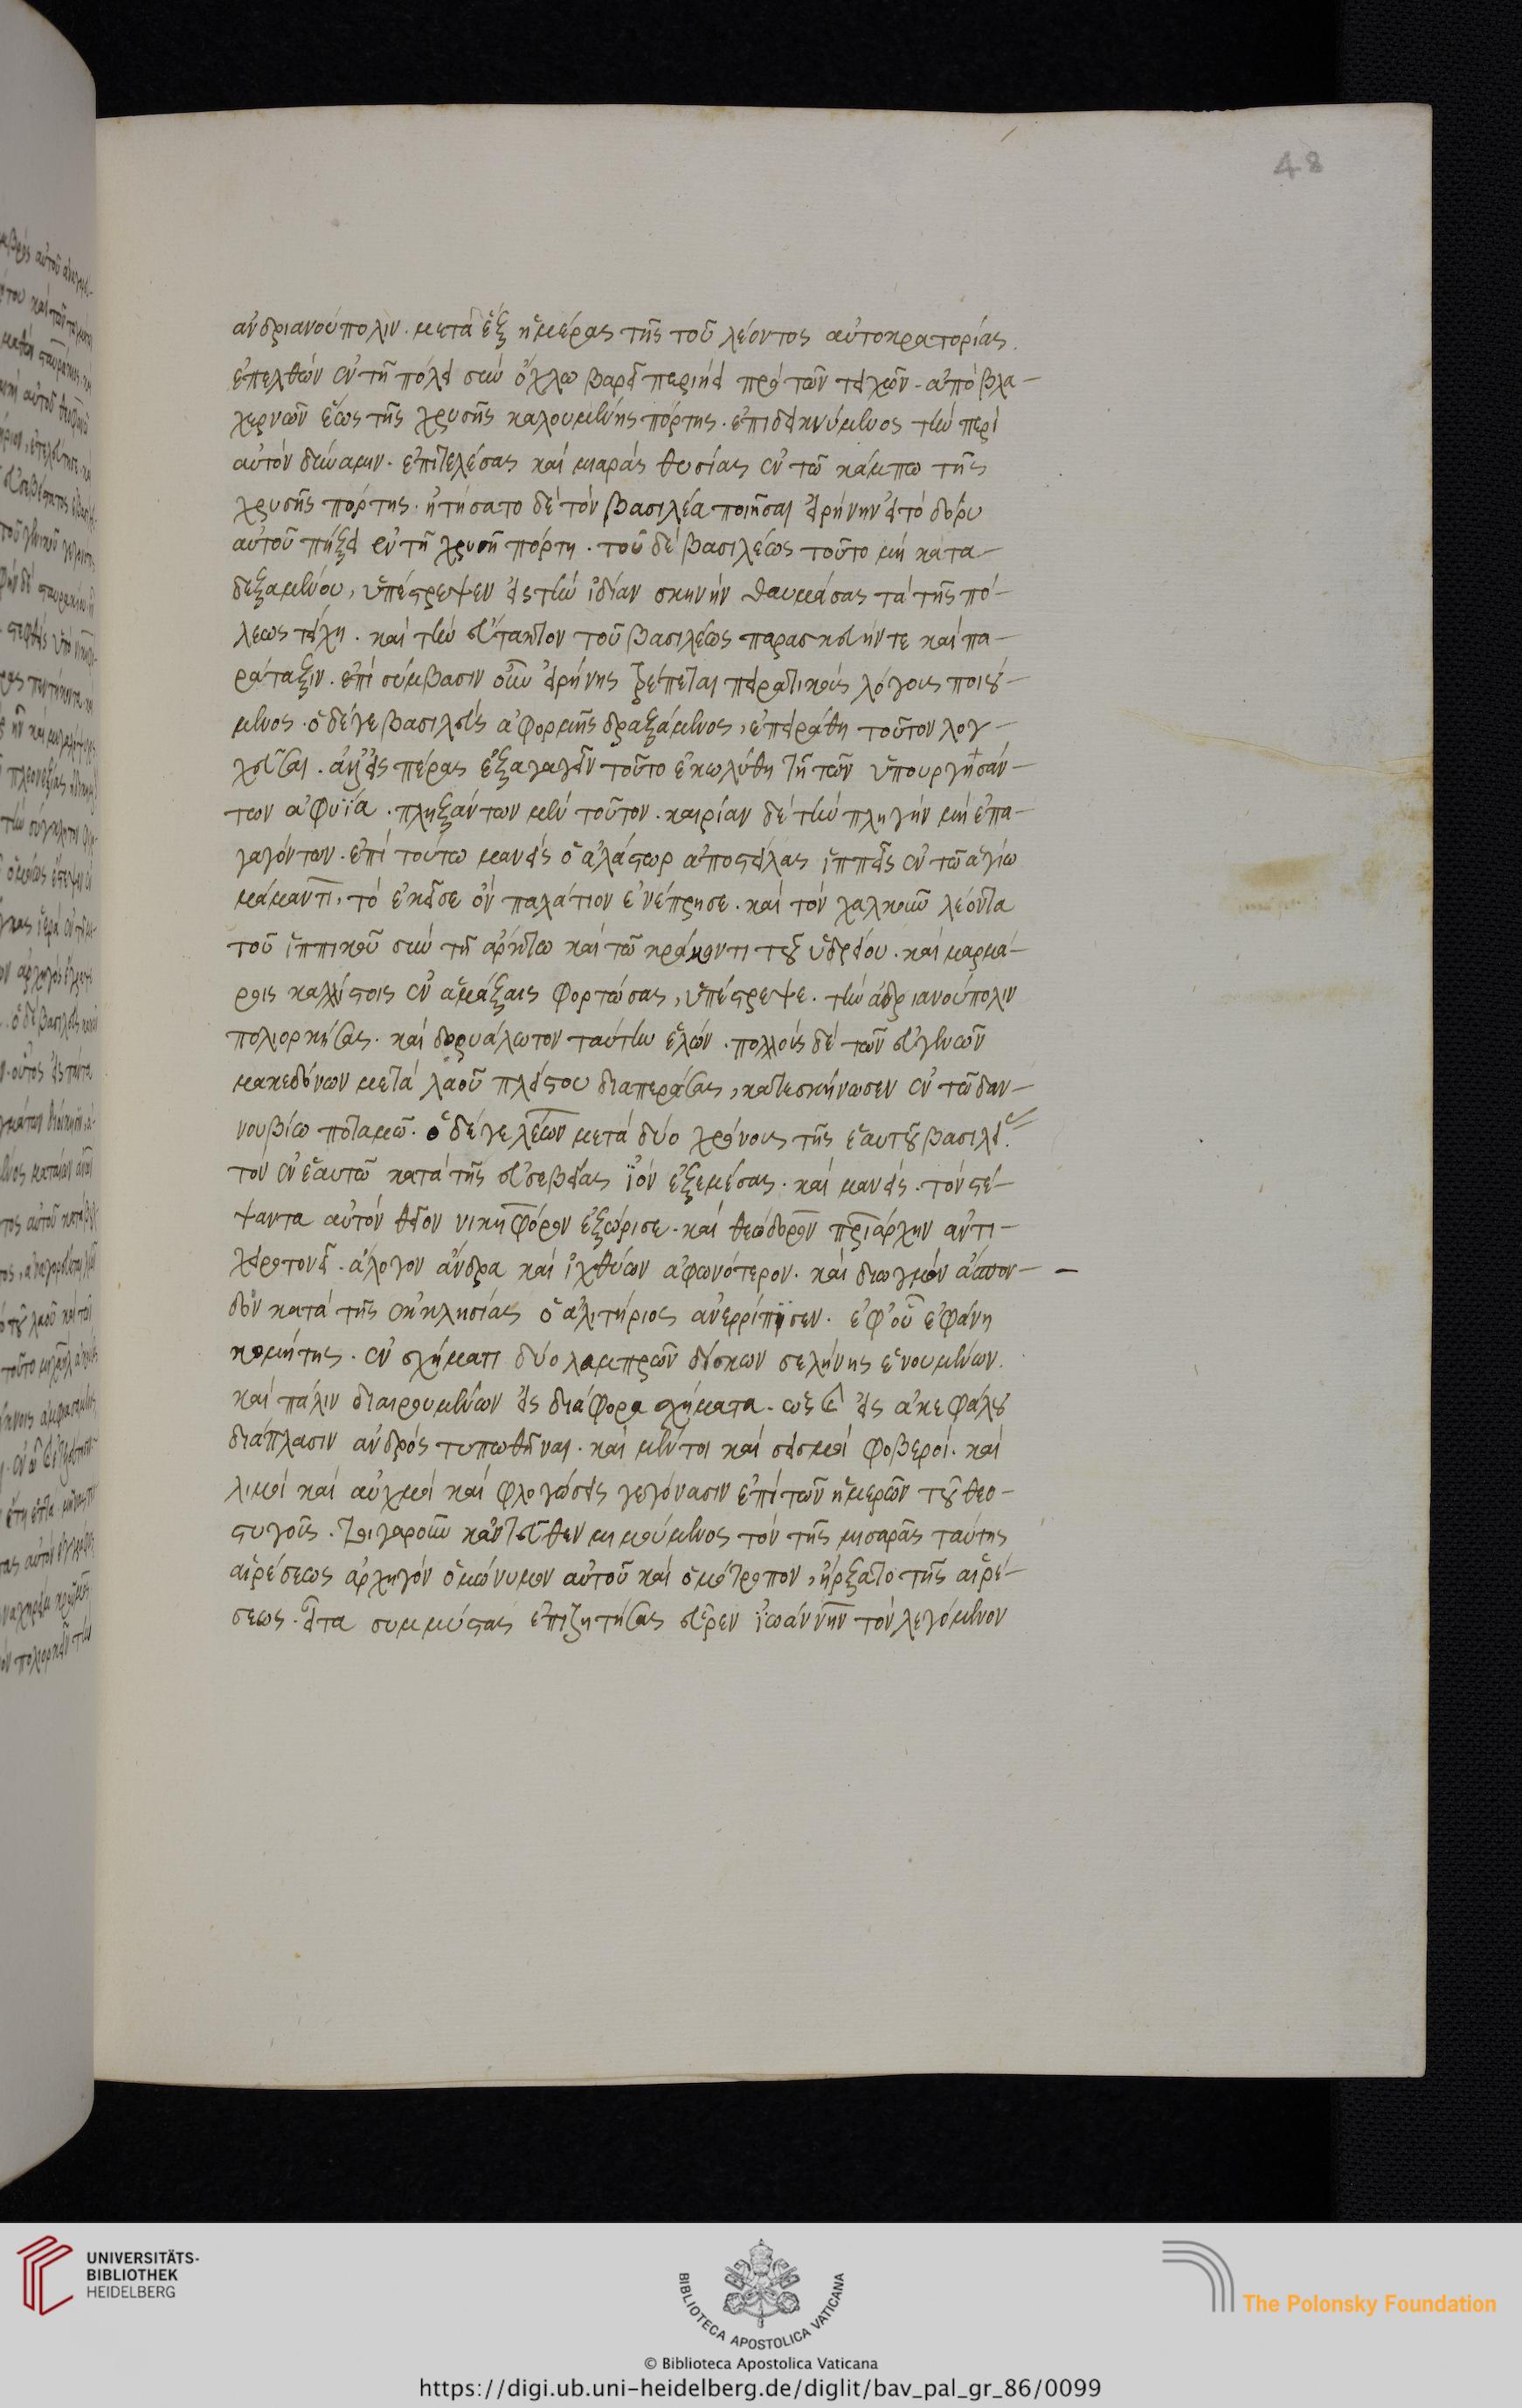 48
ἀνδριανούπολιν. μετὰ ἓξ ἡμέρας τῆς τοῦ λέοντος αὐτοκρατορίας.
ἐπελθὼν ἐν τῇ πόλει σὺν ὄχλω βαρεῖ περιήει πρὸ τῶν τειχῶν. ἀπὸ βλα-
χερνῶν ἕως τῆς χρυσῆς καλουμένης πόρτης. ἐπιδεικνύμενος τὴν περὶ
αὐτὸν δύναμιν. ἐπιτελέσας καὶ μιαρὰς θυσίας ἐν τῶ κάμπω τῆς
χρυσῆς πόρτης. ἠτήσατο δὲ τὸν βασιλέα ποιῆσαι εἰρήνην εἰ τὸ δόρυ
αὐτοῦ πήξει ἐν τῇ χρυσῇ πόρτη. τοῦ δὲ βασιλέως τοῦτο μὴ κατα-
δεξαμένου, ὑπέστρεψεν εἰς τὴν ἰδίαν σκηνὴν θαυμάσας τὰ τῆς πό-
λεως τείχη. καὶ τὴν εὔτακτον τοῦ βασιλέως παρασκευήν τε καὶ πα-
ράταξιν. ἐπὶ σύμβασιν οὖν εἰρήνης τρέπεται πειρατικοὺς λόγους ποιού-
μενος. ὁ δέ γε βασιλεὺς ἀφορμῆς δραξάμενος, ἐπειράθη τοῦτον λογ-
χεῦσαι. ἀλλ' εἰς πέρας ἐξαγαγεῖν τοῦτο ἐκωλύθη τῇ τῶν ὑπουργησάν-
των ἀφυΐα. πληξάντων μὲν τοῦτον. καιρίαν δὲ τὴν πληγὴν μὴ ἐπα-
γαγόντων. ἐπὶ τούτω μανεὶς ὁ ἀλάστωρ ἀποστείλας ἱππεῖς ἐν τῶ ἁγίω
μάμαντι, τὸ ἐκεῖσε ὂν παλάτιον ἐνέπρησε. καὶ τὸν χαλκοῦν λέοντα
τοῦ ἱππικοῦ σὺν τῇ ἄρκτω καὶ τῶ δράκοντι τοῦ ὑδρείου. καὶ μαρμά-
ροις καλλίστοις ἐν ἁμάξαις φορτώσας, ὑπέστρεψε. τὴν ἀδριανούπολιν
πολιορκήσας. καὶ δορυάλωτον ταύτην ἑλών. πολλοὺς δὲ τῶν εὐγενῶν
μακεδόνων μετὰ λαοῦ πλείστου διαπεράσας, κατεσκήνωσεν ἐν τῶ δαν-
νουβίω ποταμῶ. ὁ δέ γε λέων μετὰ δύο χρόνους τῆς ἑαυτοῦ βασιλείας
τὸν ἐν ἑαυτῶ κατὰ τῆς εὐσεβείας ἰὸν ἐξεμέσας. καὶ μανείς. τὸν στέ-
ψαντα αὐτὸν θεῖον νικηφόρον ἐξώρισε. καὶ θεόδοτον πριάρχην ἀντι-
χειροτονεῖ. ἄλογον ἄνδρα καὶ ἰχθύων ἀφωνότερον. καὶ διωγμὸν ἄσπον-
δον κατὰ τῆς ἐκκλησίας ὁ ἀλιτήριος ἀνερρίπισεν. ἐφ' οὗ ἐφάνη
κομήτης. ἐν σχήματι δύο λαμπρῶν δίσκων σελήνης ἑνουμένων.
καὶ πάλιν διαιρουμένων εἰς διάφορα σχήματα. ὡς καὶ εἰς ἀκεφάλου
διάπλασιν ἀνδρὸς τυπωθῆναι. καὶ μέντοι καὶ σεισμοὶ φοβεροί. καὶ
λιμοὶ καὶ αὐχμοὶ καὶ φλογώσεις γεγόνασιν ἐπὶ τῶν ἡμερῶν τοῦ θεο-
στυγοῦς. τοιγαροῦν κἀντεῦθεν μιμούμενος τὸν τῆς μισαρᾶς ταύτης
αἱρέσεως ἀρχηγὸν ὁμώνυμον αὐτοῦ καὶ ὁμότροπον, ἤρξατο τῆς αἱρέ-
σεως. εἶτα συμμύστας ἐπιζητήσας εὗρεν ἰωάννην τὸν λεγόμενον
UNIVERSITÄTS-
BIBLIOTHEK
HEIDELBERG
BIBLIOTECA APOSTOLICA VATICANA
The Polonsky Foundation
© Biblioteca Apostolica Vaticana
https://digi.ub.uni-heidelberg.de/diglit/bav_pal_gr_86/0099